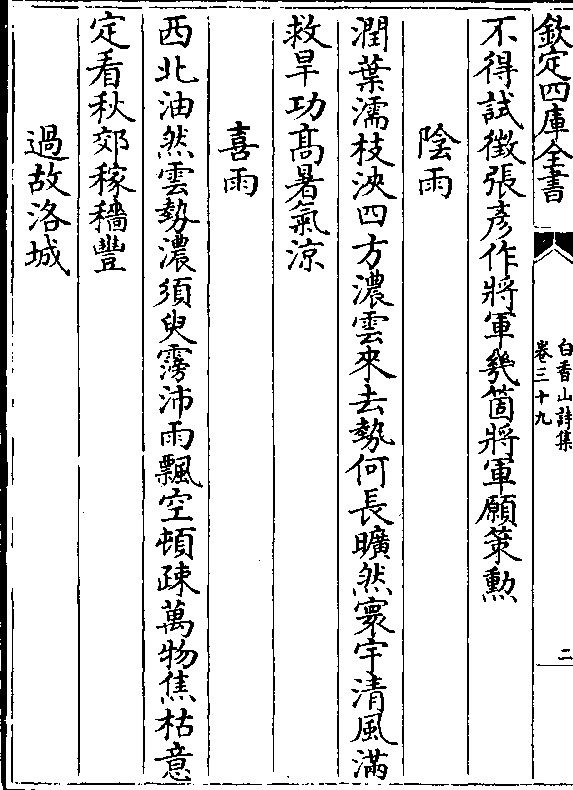 欽定四庫全書
白香山詩集
卷三十九
二
不得試徴張彥作將軍幾箇將軍願策勲
陰雨
潤葉濡枝浹四方濃雲來去勢何長曠然寰宇清風滿
救旱功髙暑氣涼
喜雨
西北油然雲勢濃須臾霶沛雨飄空頓疎萬物焦枯意
定看秋郊稼穡豐
過故洛城